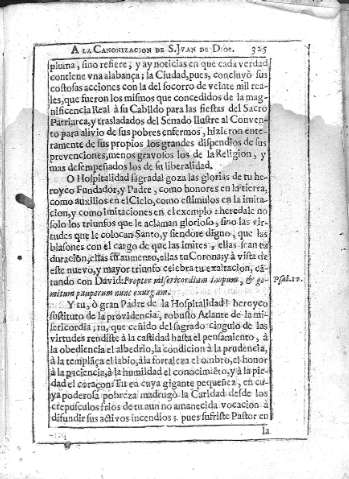 A LA CANONIZACION DE S. JVAN DE DIOS. 325
pluma, sino refiere; y ay noticias en que cada verdad
contiene vna alabança; la Ciudad, pues, concluyò sus
costosas acciones con la del socorro de veinte mil rea-
les, que fueron los mismos que concedidos de la mag-
nificencia Real à su Cabildo para las fiestas del Sacro
Patriarca, y trasladados del Senado Ilustre al Conven-
to para alivio de sus pobres enfermos, hizieron ente-
ramente de sus propios los grandes dispendios de sus
prevenciones, menos gravosos los de la Religion, y
mas desempeñados los de su liberalidad.
O Hospitalidad sagrada! goza las glorias de tu he-
royco Fundador, y Padre, como honores en la tierra,
como auxilios en el Cielo, como estimulos en la imita-
cion, y como imitaciones en el exemplo: heredale no
solo los triunfos que le aclaman glorioso, sino las vir-
tudes que le colocan Santo, y siendote digno, que las
blasones con el cargo de que las imites, ellas seràn tu
duracion, ellas tu aumento, ellas tu Corona; y à vista de
este nuevo, y mayor triunfo celebra tu exaltacion, cã-
tando con David: Propter misericordiam inopum, & ge-
mitum pauperum nunc exurgam.
Psal. 11.
Y tu, ò gran Padre de la Hospitalidad! heroyco
sustituto de la providencia, robusto Atlante de la mi-
sericordia; tu, que ceñido del sagrado cingulo de las
virtudes rendiste à la castidad hasta el pensamiento, à
la obediencia el albedrio, la condicion à la prudencia,
à la templãça el labio, à la fortaleza el ombro, el honor
à la paciencia, à la humildad el conocimiẽto, y à la pie-
dad el coraçon: Tu en cuya gigante pequeñez, en cu-
ya poderosa pobreza madrugò la Caridad desde los
crepusculos frios de tu aun no amanecida vocacion à
difundir sus activos incendios; pues sufriste Pastor en
la